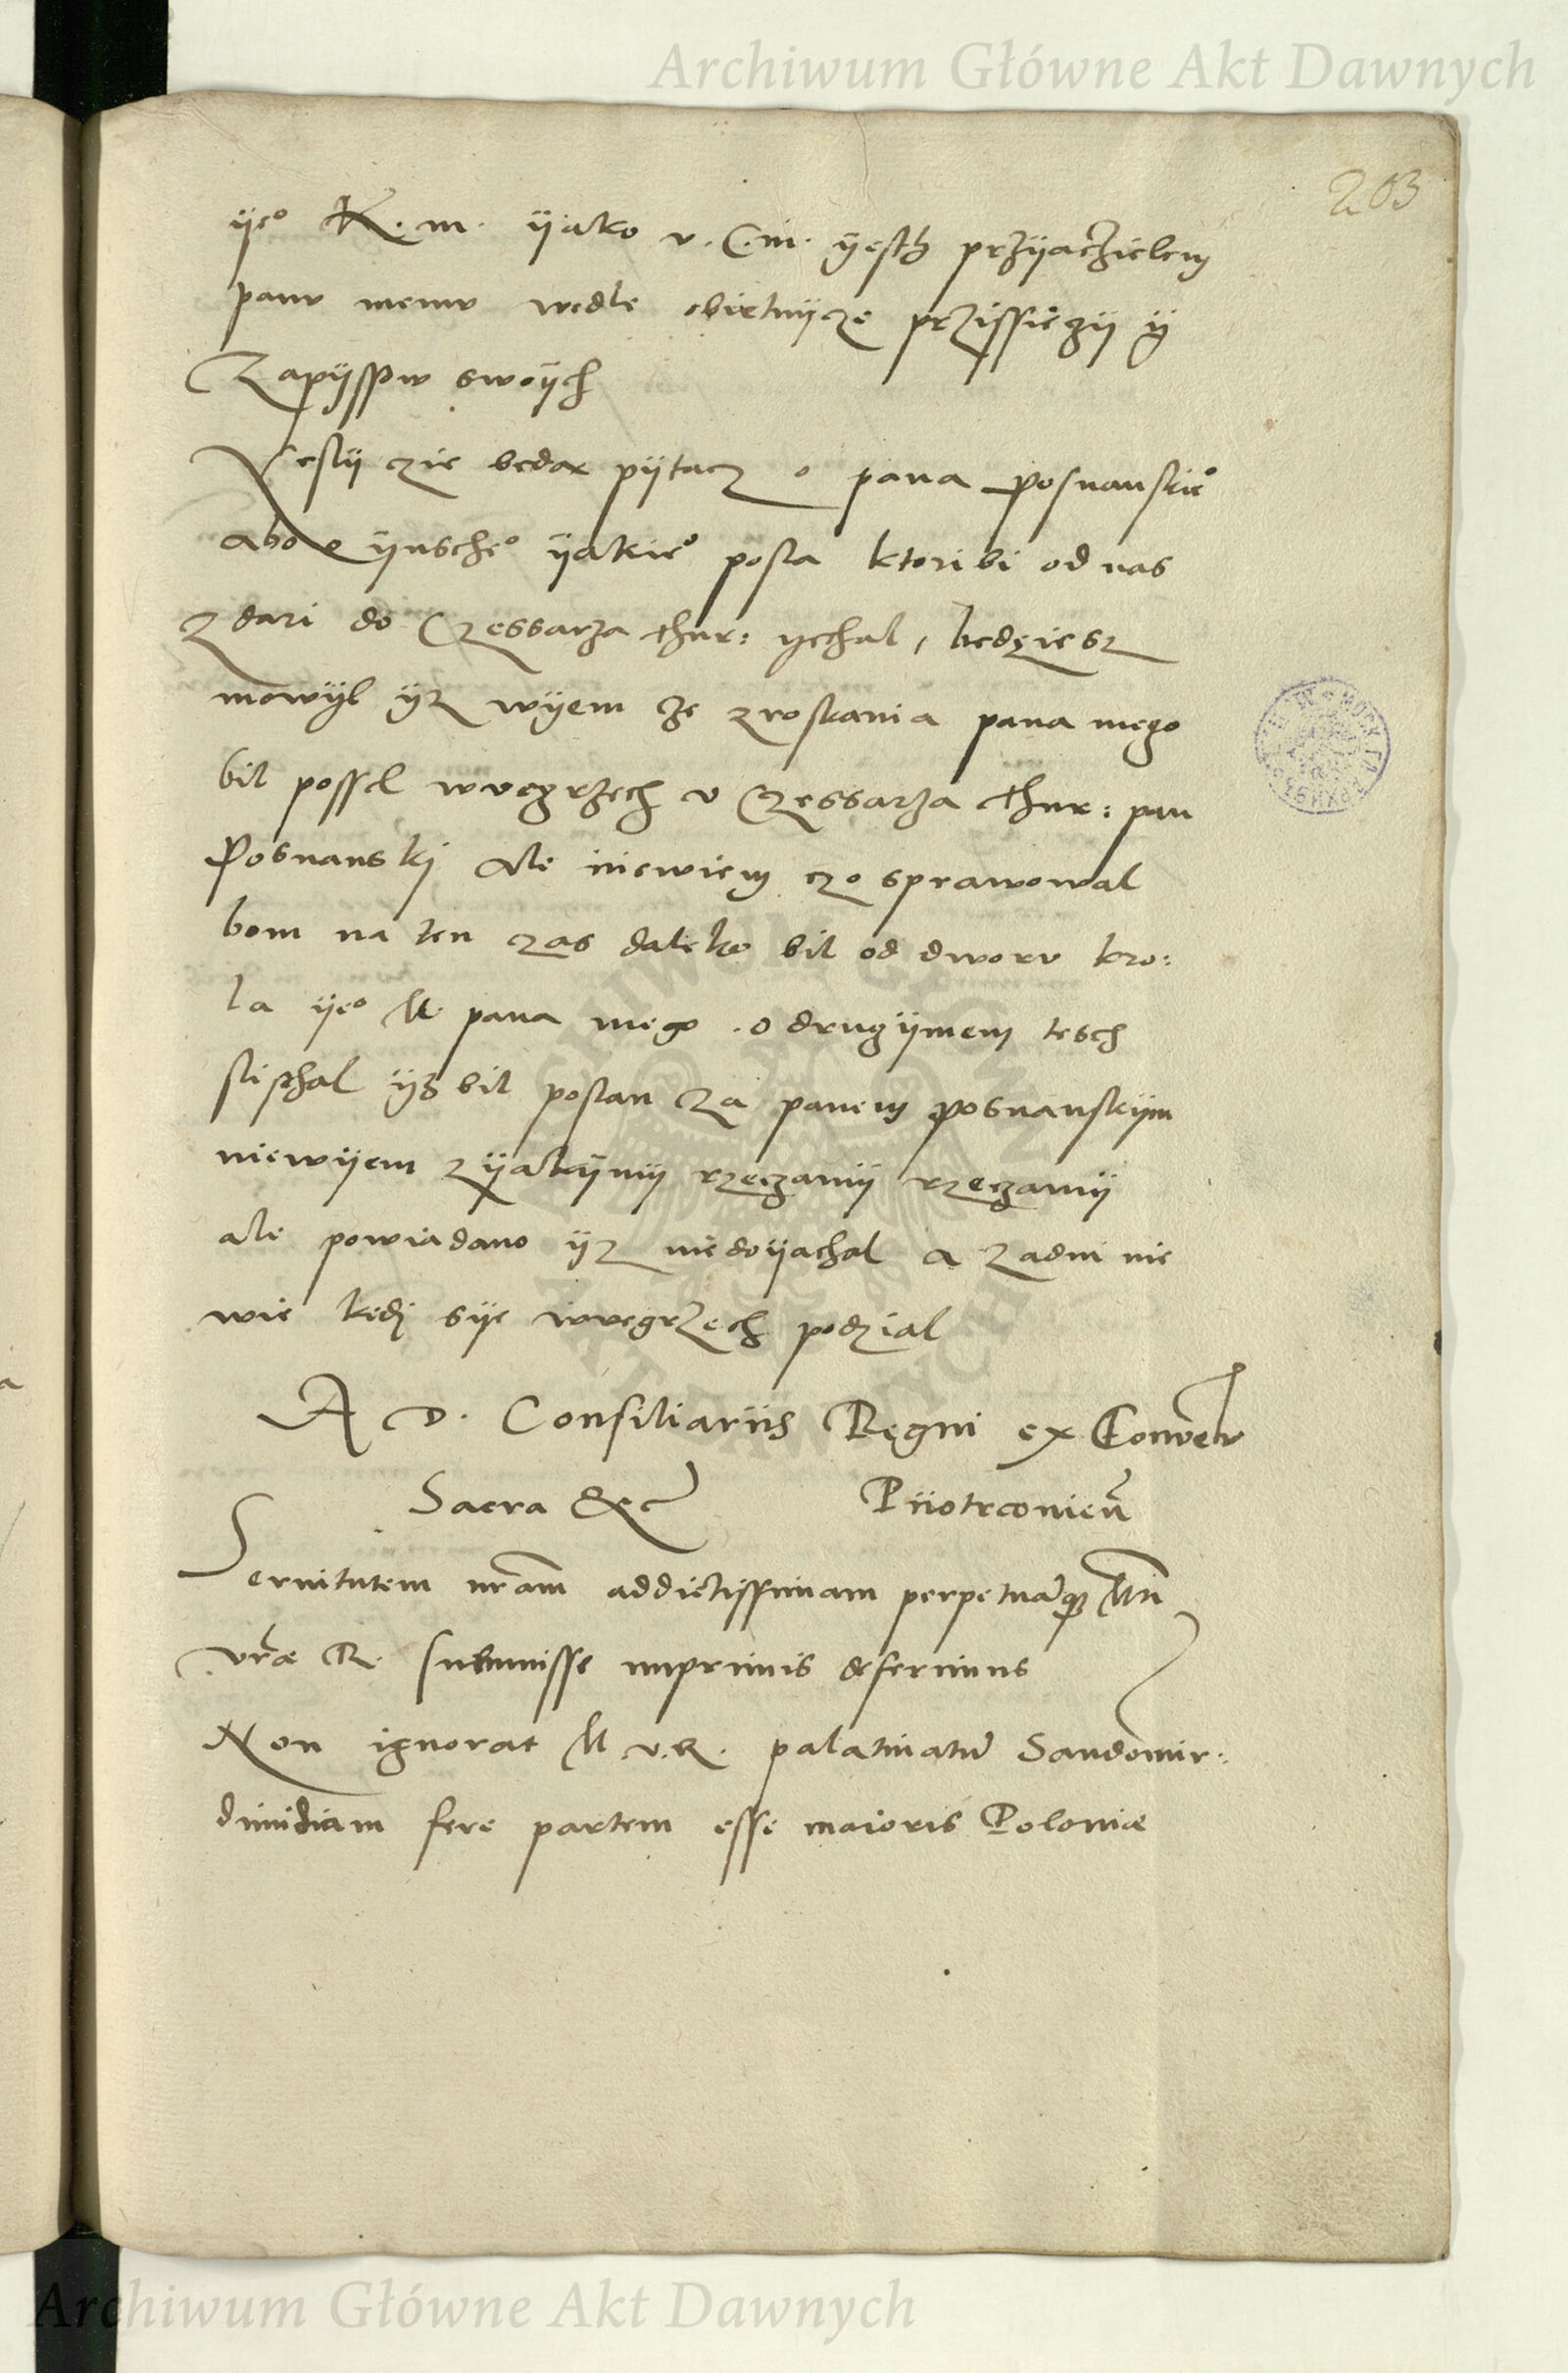 Archiwum Główne Akt Dawnych
203
ÿe° K. m. ÿako v. C. m. ÿesth przÿaczielem
panv memv wedle obietnÿcze przissiegÿ ÿ
Zapÿssow swoÿch
Jeslÿ czie beda pÿtacz o pana Posnanskie°
abo o ÿnsche° ÿakie° posla ktori bi od nas
z dari do Czessarza thur: ÿechal, bedziesz
mowÿl ÿz wÿem ze z roskania pana mego
bil possel wvegrzech v Czessarza thur: pan
Posnanski Ale niewiem czo sprawowal
bom na ten czas daleko bil od dworv kro:
la ÿe° M. pana mego . o drugÿmem tesch
slischal ÿz bil poslan za panem posnanskÿm
niewÿem z ÿakÿmÿ rzeczamÿ rzeczamÿ
ale powiadano ÿz niedoÿachal a zadni nie
wie kedi sÿe wvegrzech podzial
A D. Consiliariis Regni ex Conventv
Sacra &c Piiotrconien̄
Seruitutem nr̄am addictissimam perpetuāq3 Mti
vr̄æ R. submisse imprimis deferimus
Non ignorat M. v. R. palatinatū Sandomir:
dimidiam fere partem esse maioris Poloniæ
Archiwum Główne Akt Dawnych